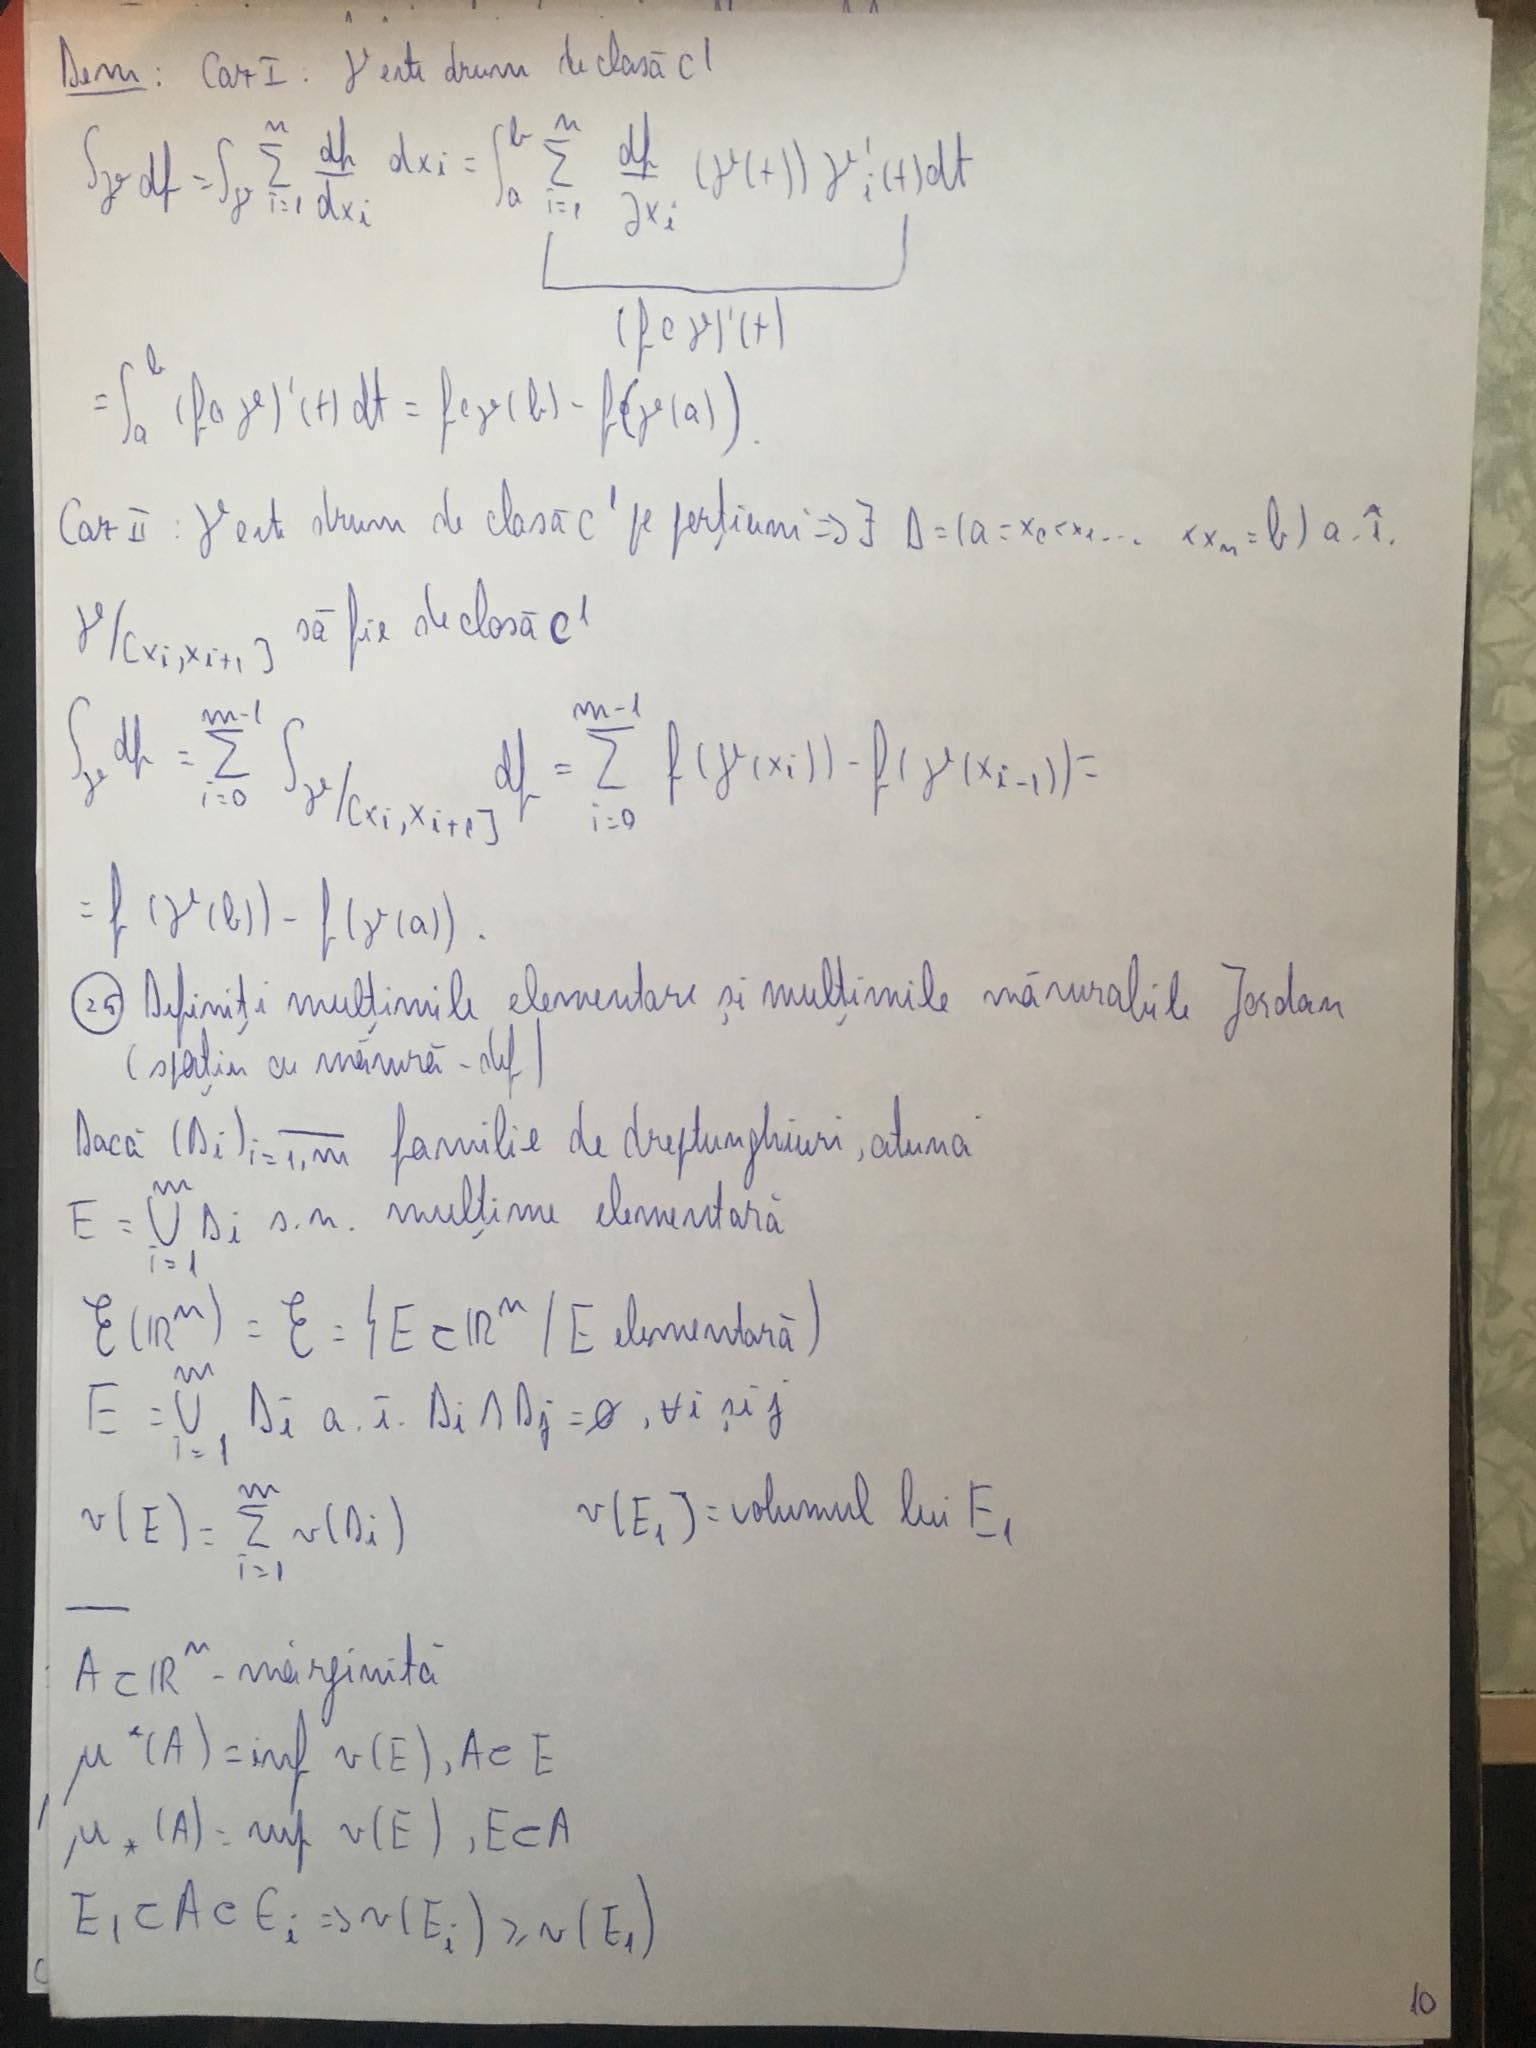 Dem: Caz I: γ este drum de clasă C¹
∫_γ df = ∫_γ Σ_{i=1}^{n} df/dx_i dx_i = ∫_a^b Σ_{i=1}^{n} df/∂x_i (γ(t)) γ'_i(t) dt
(f∘γ)'(t)
= ∫_a^b (f∘γ)'(t) dt = f∘γ(b) - f(γ(a)).
Caz II: γ este drum de clasă C¹ pe porțiuni => ∃ Δ = (a = x_0 < x_1 ... < x_n = b) a.î.
γ/[x_i, x_{i+1}] să fie de clasă C¹
∫_γ df = Σ_{i=0}^{m-1} ∫_{γ/[x_i, x_{i+1}]} df = Σ_{i=0}^{m-1} f(γ(x_i)) - f(γ(x_{i-1})) =
= f(γ(b)) - f(γ(a)).
(25) Definiți mulțimile elementare și mulțimile măsurabile Jordan
(spațiu cu măsură - def)
Dacă (D_i)_{i=\overline{1,m}} familie de dreptunghiuri, atunci
E = ∪_{i=1}^{m} D_i s.n. mulțime elementară
ℰ(ℝⁿ) = ℰ = {E ⊂ ℝⁿ / E elementară}
E = ∪_{i=1}^{m} D_i a.î. D_i ∩ D_j = ∅, ∀ i și j
v(E) = Σ_{i=1}^{m} v(D_i) v(E_1) = volumul lui E_1
A ⊂ ℝⁿ - mărginită
μ*(A) = inf v(E), A ⊂ E
μ_*(A) = sup v(E), E ⊂ A
E_1 ⊂ A ⊂ E_i => v(E_i) ≥ v(E_1)
10